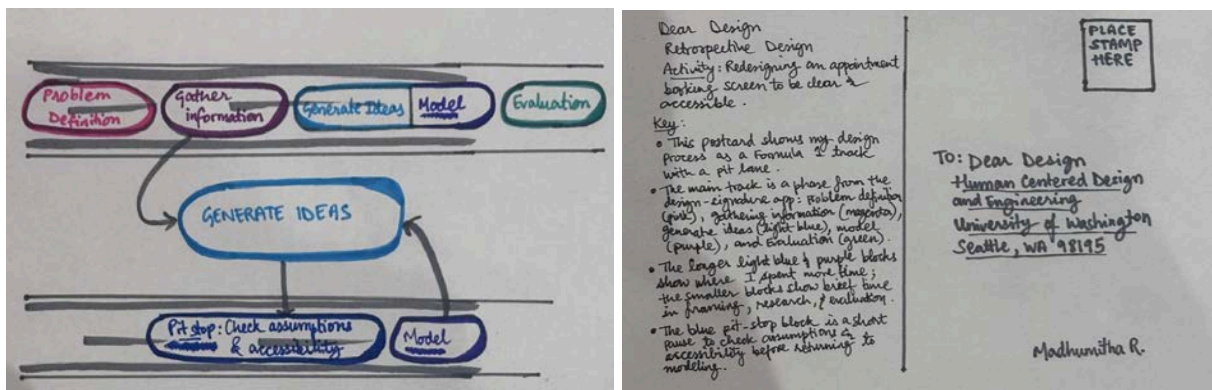 Problem
Definition
Gather
information
Generate Ideas
Model
Evaluation
GENERATE IDEAS
Pit stop: Check assumptions
& accessibility
Model
Dear Design
Retrospective Design
Activity: Redesigning an appointment
booking screen to be clear &
accessible.
Key:
• This postcard shows my design
process as a Formula 1 track
with a pit lane.
• The main track is a phase from the
design-signature app: Problem definition
(pink), gathering information (magenta),
generate ideas (light blue), model
(purple), and Evaluation (green).
• The longer light blue & purple blocks
show where I spent more time;
the smaller blocks show brief time
in framing, research, & evaluation.
• The blue pit-stop block is a short
pause to check assumptions &
accessibility before returning to
modeling.
PLACE
STAMP
HERE
TO: Dear Design
Human Centered Design
and Engineering
University of Washington
Seattle, WA 98195
Madhumitha R.